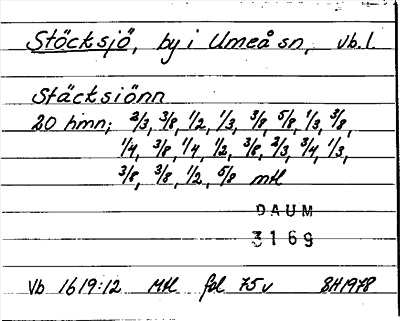 Stöcksjö, by i Umeå sn, vb.l.
Stäcksiönn
20 hmn; 2/3, 3/8, 1/2, 1/3, 3/8, 5/8, 1/3, 3/8,
1/4, 3/8, 1/4, 1/2, 3/8, 2/3, 3/4, 1/3,
3/8, 3/8, 1/2, 5/8 mtl
DAUM
3169
Vb 1619:12 Mtl fol 75v SH1978